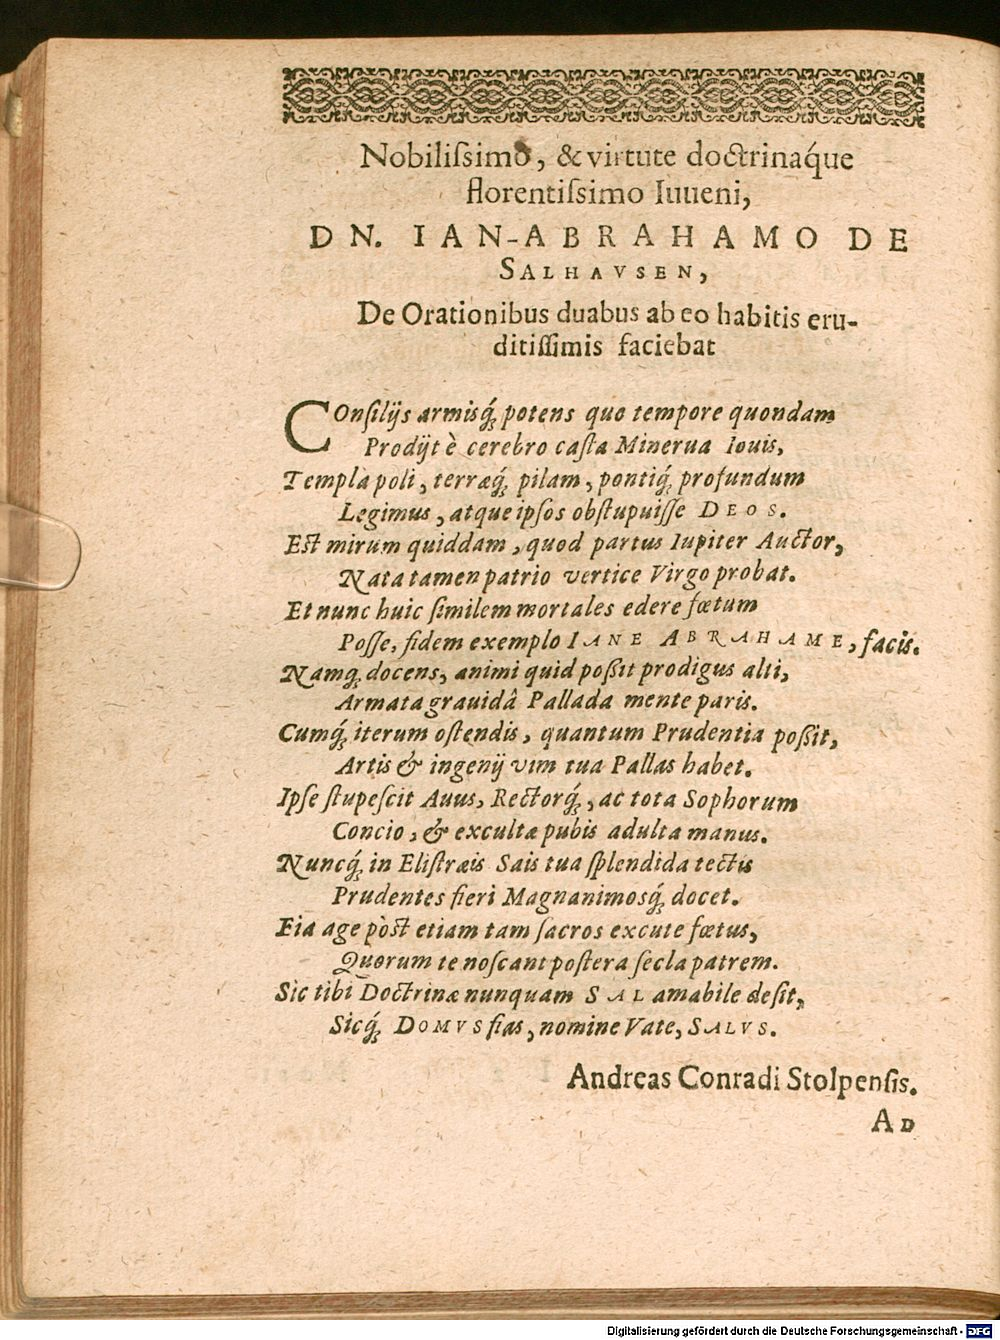 Nobiliſsimo, & virtute doctrinaq́ue
florentiſsimo Iuueni,
DN. IAN-ABRAHAMO DE
SALHAVSEN,
De Orationibus duabus ab eo habitis eru-
ditiſſimis faciebat
COnſilijs armisq́; potens quo tempore quondam
Prodijt è cerebro caſta Minerua Iouis,
Templa poli, terræq́; pilam, pontiq́; profundum
Legimus, atque ipſos obſtupuiſſe DEOS.
Eſt mirum quiddam, quod partus Iupiter Auctor,
Nata tamen patrio vertice Virgo probat.
Et nunc huic ſimilem mortales edere fœtum
Poſſe, fidem exemplo IANE ABRAHAME, facis.
Namq; docens, animi quid poßit prodigus alti,
Armata grauidâ Pallada mente paris.
Cumq́; iterum oſtendis, quantum Prudentia poßit,
Artis & ingenij vim tua Pallas habet.
Ipſe ſtupeſcit Auus, Rectorq́;, ac tota Sophorum
Concio, & excultæ pubis adulta manus.
Nuncq́; in Eliſtræis Sais tua ſplendida tectis
Prudentes fieri Magnanimosq́; docet.
Eia age pòſt etiam tam ſacros excute fœtus,
Quorum te noſcant poſtera ſecla patrem.
Sic tibi Doctrinæ nunquam SAL amabile deſit,
Sicq́; DOMVS fias, nomine Vate, SALVS.
Andreas Conradi Stolpenſis.
AD
Digitalisierung gefördert durch die Deutsche Forschungsgemeinschaft - DFG